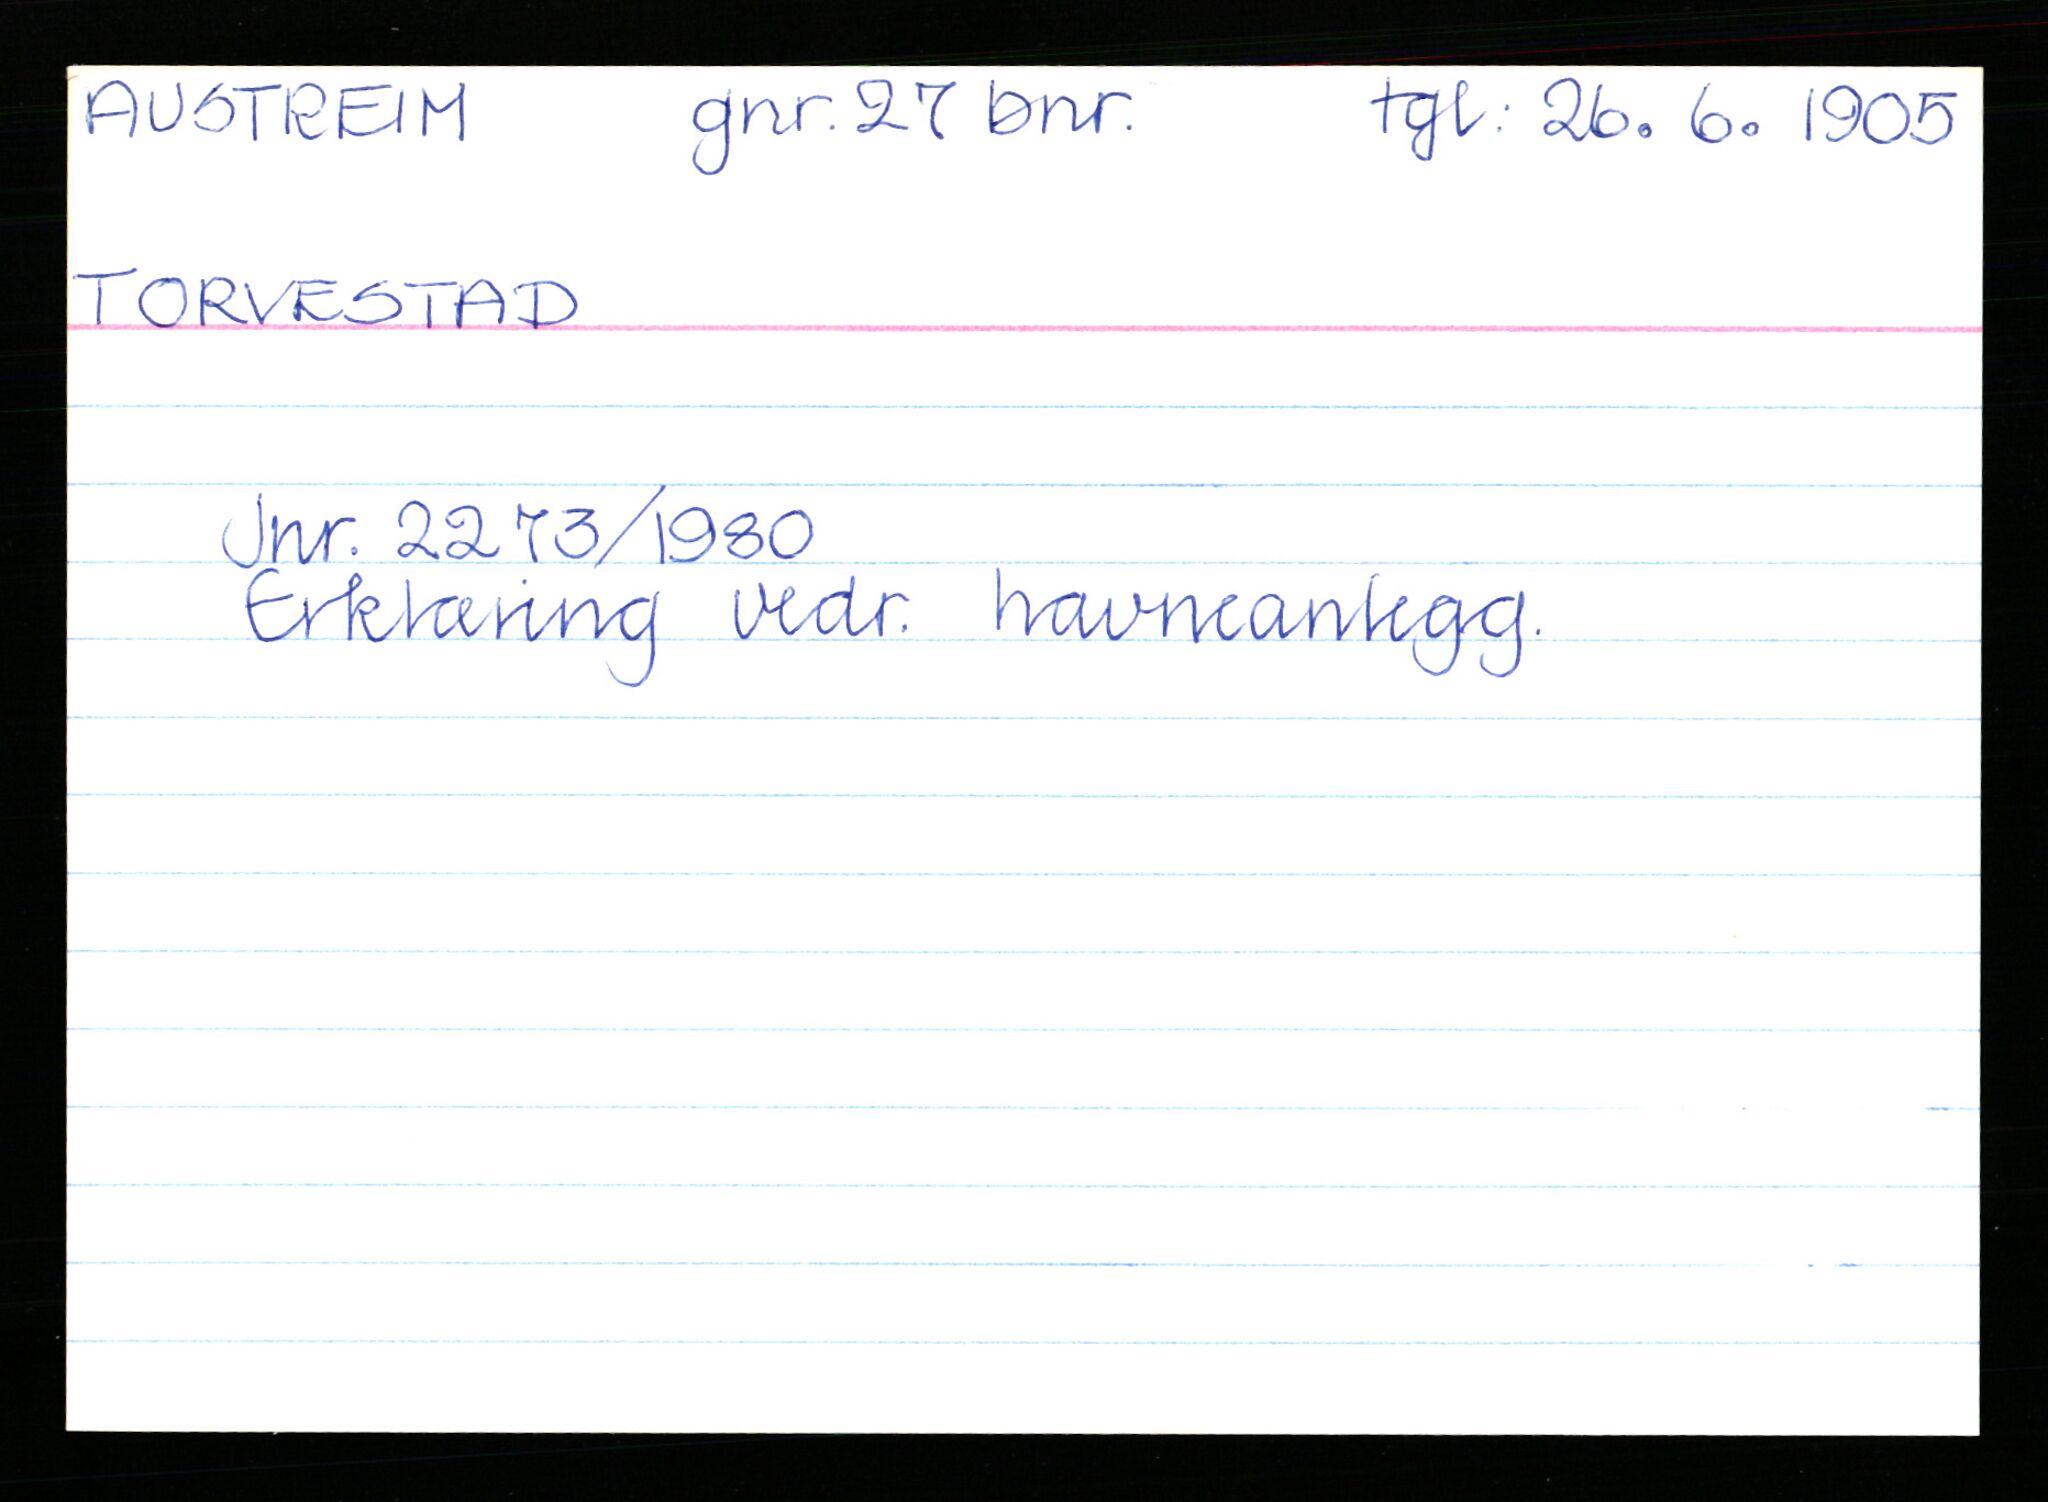 AUSTREIM gnr. 27 bnr. tgl: 26. 6. 1905
TORVESTAD
Jnr. 2273/1980
Erklæring vedr. havneanlegg.